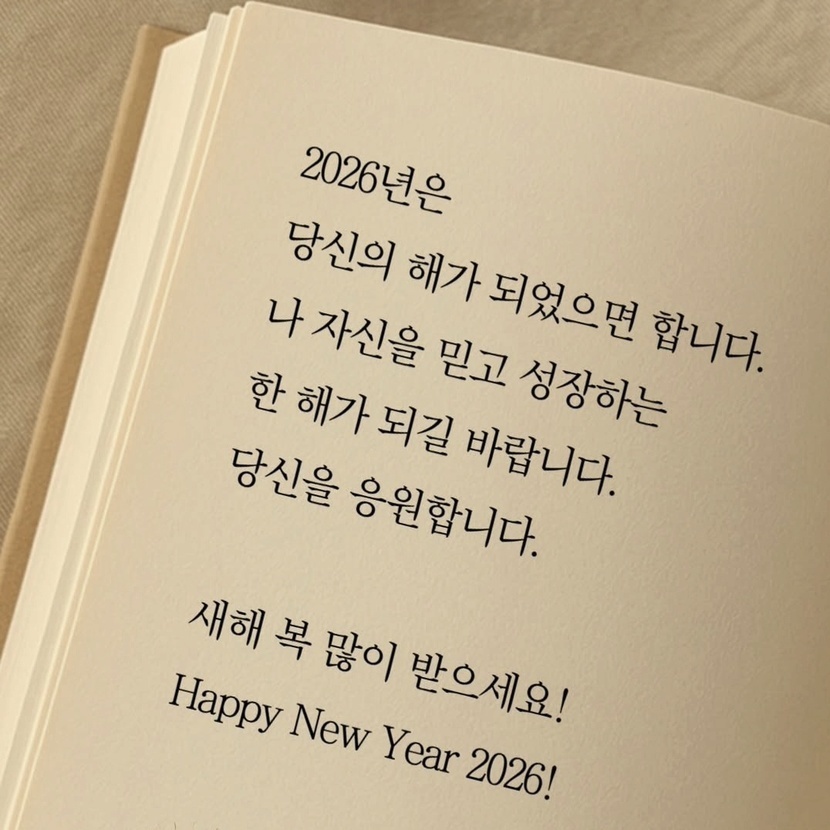 2026년은
당신의 해가 되었으면 합니다.
나 자신을 믿고 성장하는
한 해가 되길 바랍니다.
당신을 응원합니다.
새해 복 많이 받으세요!
Happy New Year 2026!